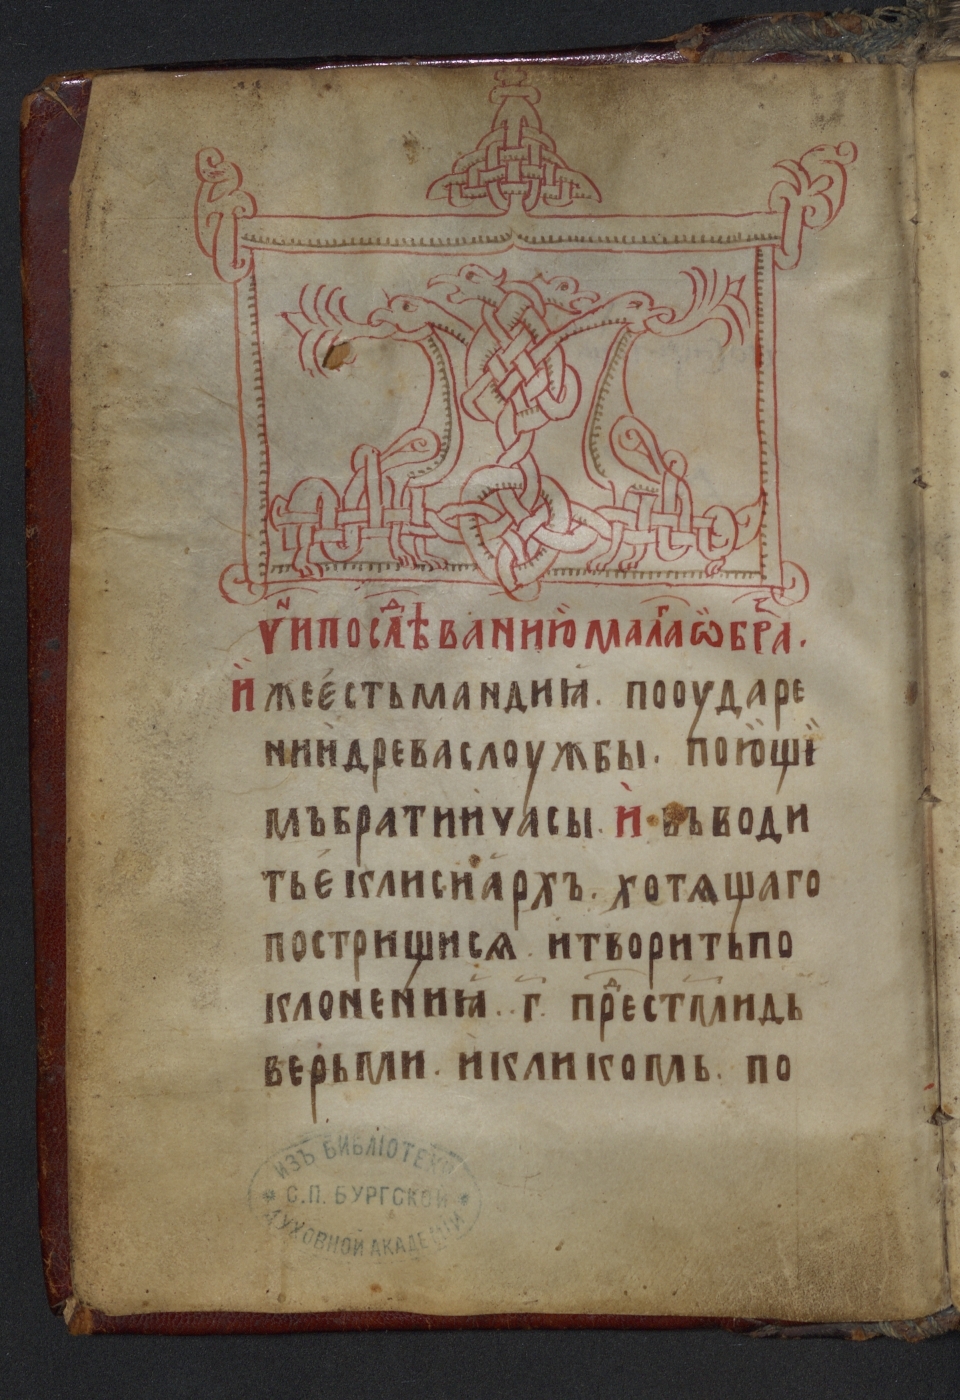 Ꙋ҃Н ПОСЛѢВАНИЮ МАЛАГО ѠБРАꙀА.
И҆ЖЕ Е҆СТЬ МАНДИꙖ. ПО ОУДАРЕ
НИИ ДРЕВА СЛОУЖБЫ. ПОЮЩИ
МЪ БРАТИИ ЧАСЫ. И҆ ВЪВОДИ
ТЬ ЕКЛИСИАРХЪ. ХОТѦЩАГО
ПОСТРИЩИСѦ. И ТВОРИТЬ ПО
КЛОНЕНИꙖ. Г҃. ПРЕДЪ СТ҃ЫМИ ДЬ
ВЕРЬМИ. И КЛИКОМЬ. ПО
ИЗЪ БИБЛІОТЕКИ
С.П. БУРГСКОЙ
ДУХОВНОЙ АКАДЕМІИ